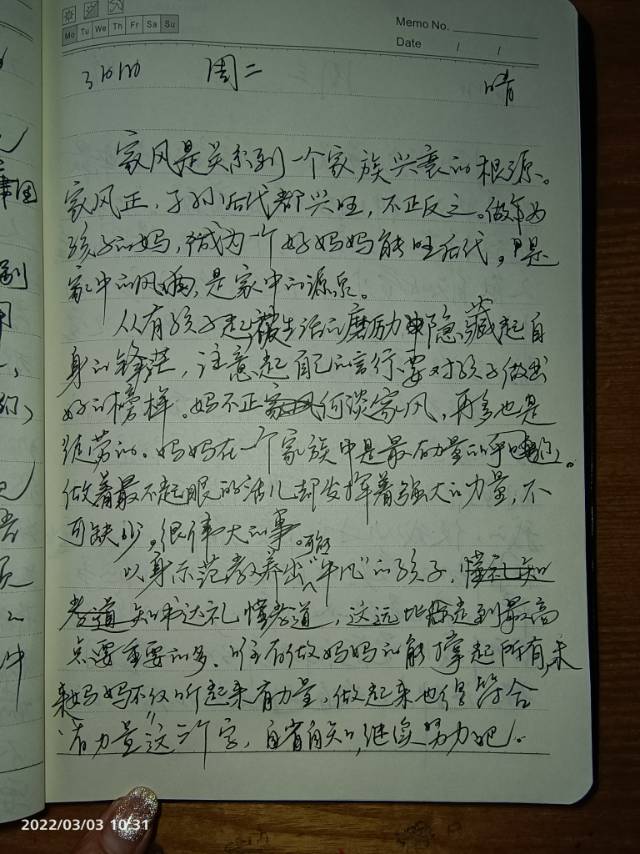 Mo Tu We Th Fr Sa Su
Memo No.
Date / /
周二 晴
家风是关系到一个家族兴衰的根源。
家风正，子孙后代都兴旺，不正反之。做为
孩子的妈，成为一个好妈妈能旺后代。是
家中的风，是家中的源泉。
从有孩子起，被生活的磨厉隐藏起自
身的锋芒，注意起自己的言行，要对孩子做出
好的榜样。妈不正何谈家风，再多也是
徒劳的。妈妈在一个家族中是最有力量的。
做着最不起眼的活儿却发挥着强大的力量，不
可缺少，很伟大的事。
以身示范教养出“平凡”的孩子，懂礼知
孝道知书达礼懂孝道，这远比走到最高
点要重要的多。所有做妈妈的能撑起所有，未
来妈妈不仅听起来有力量，做起来也得符合
“有力量”这三个字，自省自知，继续努力吧！
2022/03/03 10:31